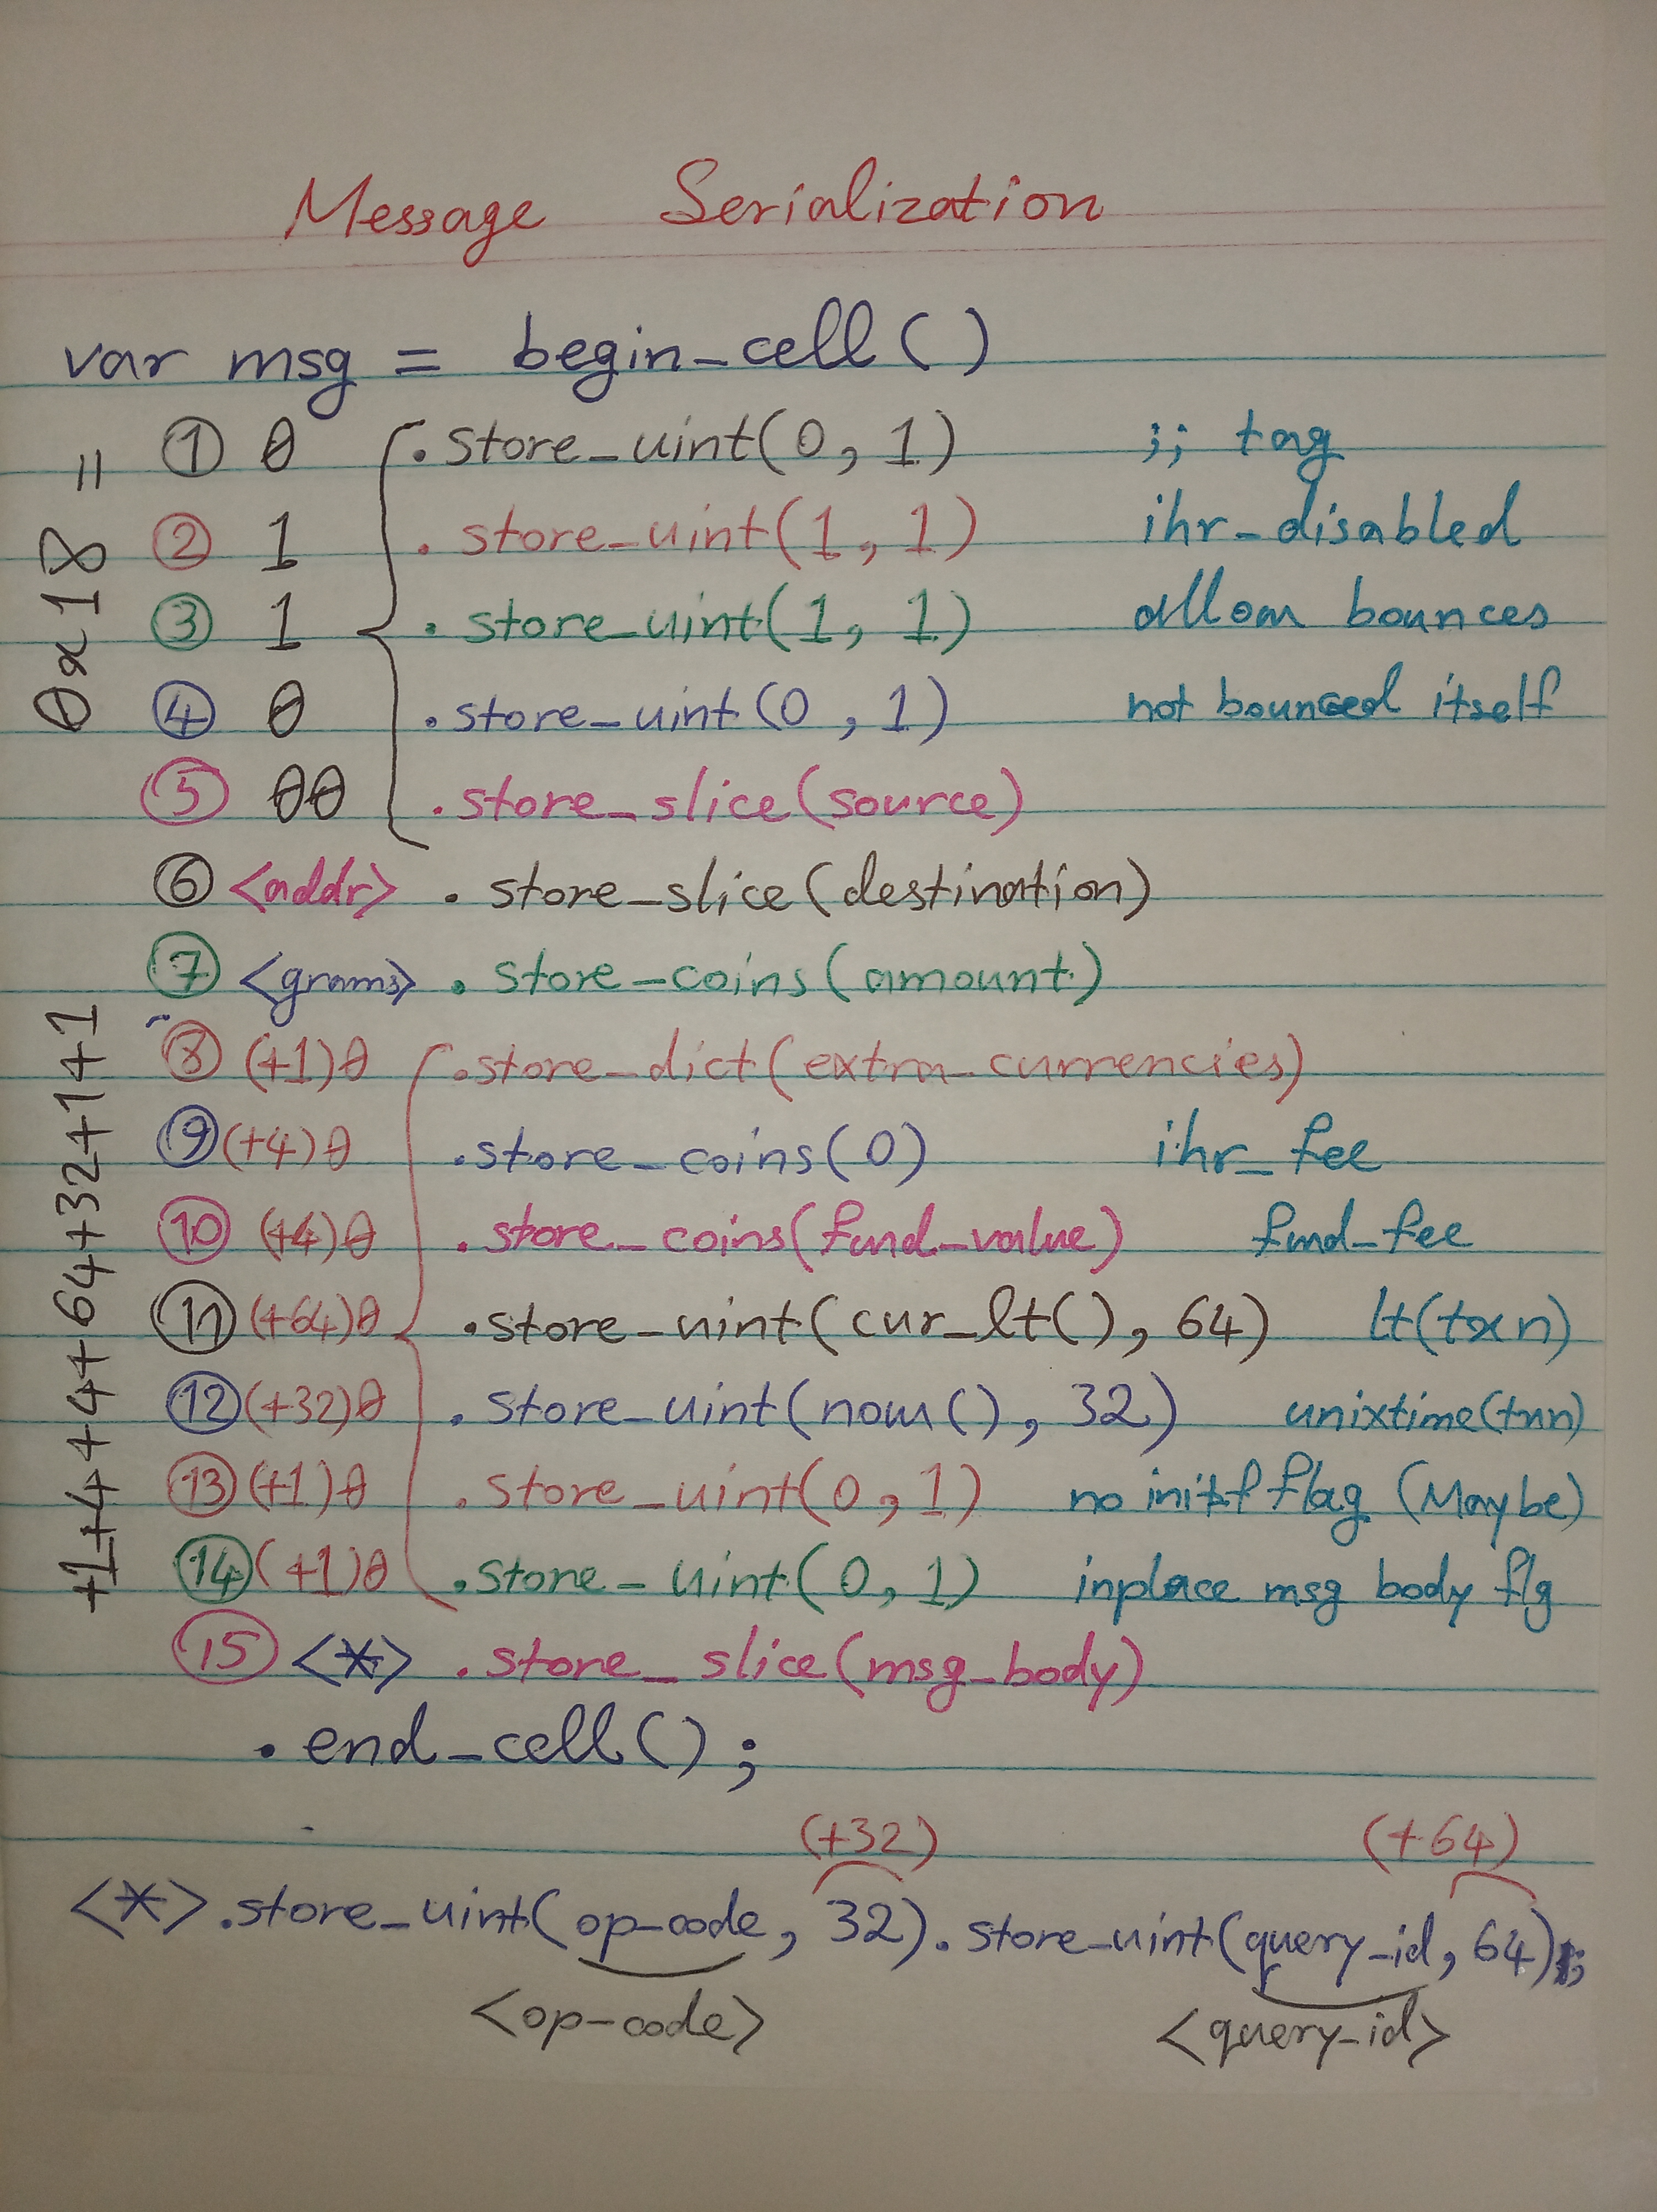 Message Serialization
var msg = begin_cell()
① 0 .store_uint(0, 1) ;; tag
② 1 .store_uint(1, 1) ihr_disabled
③ 1 .store_uint(1, 1) allow bounces
④ 0 .store_uint(0, 1) not bounced itself
⑤ 00 .store_slice(source)
0x18 =
⑥ <addr> .store_slice(destination)
⑦ <grams> .store_coins(amount)
⑧ (+1)0 .store_dict(extra_currencies)
⑨ (+4)0 .store_coins(0) ihr_fee
⑩ (+4)0 .store_coins(fwd_value) fwd_fee
⑪ (+64)0 .store_uint(cur_lt(), 64) lt(txn)
⑫ (+32)0 .store_uint(now(), 32) unixtime(txn)
⑬ (+1)0 .store_uint(0, 1) no init-f flag (Maybe)
⑭ (+1)0 .store_uint(0, 1) inplace msg body flg
+1+4+4+64+32+1+1
⑮ <*> .store_slice(msg_body)
.end_cell();
(+32) (+64)
<*>.store_uint(op-code, 32).store_uint(query_id, 64);
<op-code> <query_id>